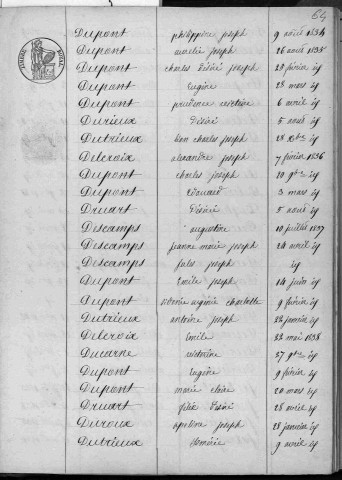 64
TIMBRE ROYAL
Dupont philippine joseph 9 août 1834
Dupont aurélie joseph 26 août 1835
Dupont charles Désiré joseph 28 février id
Dupont Eugène 28 mars id
Dupont prudence victoire 6 avril id
Durieux Désiré 5 août id
Dutrieux bon charles joseph 28 Xbre id
Delcroix alexandre joseph 7 février 1836
Dupont charles joseph 20 9bre id
Dupont édouard 3 mars id
Druart Désiré 5 août id
Descamps augustine 10 juillet 1837
Descamps jeanne marie joseph 28 avril id
Descamps jules joseph id
Dupont Emile joseph 14 juin id
Dupont virginie charlotte 9 février id
Dutrieux antoine joseph 22 janvier id
Delcroix Emile 22 mai 1838
Ducarne victoire 27 9bre id
Dupont Eugène 9 février id
Dupont marie claire 20 mars id
Druart félix Désiré 28 avril id
Duroux apolline joseph 28 janvier id
Dutrieux Romain 9 avril id